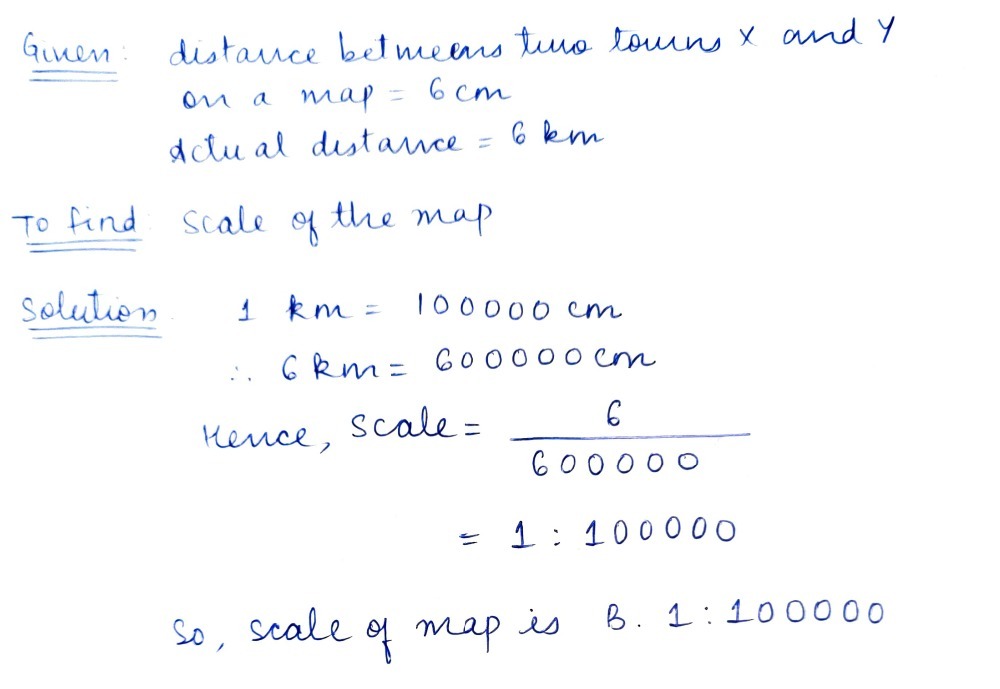 Given: distance betweens two towns X and Y
on a map = 6 cm
Actual distance = 6 km
To find: scale of the map
Solution. 1 km = 100000 cm
∴ 6 km = 600000 cm
Hence, scale = 6
600000
= 1 : 100000
So, scale of map is B. 1 : 100000